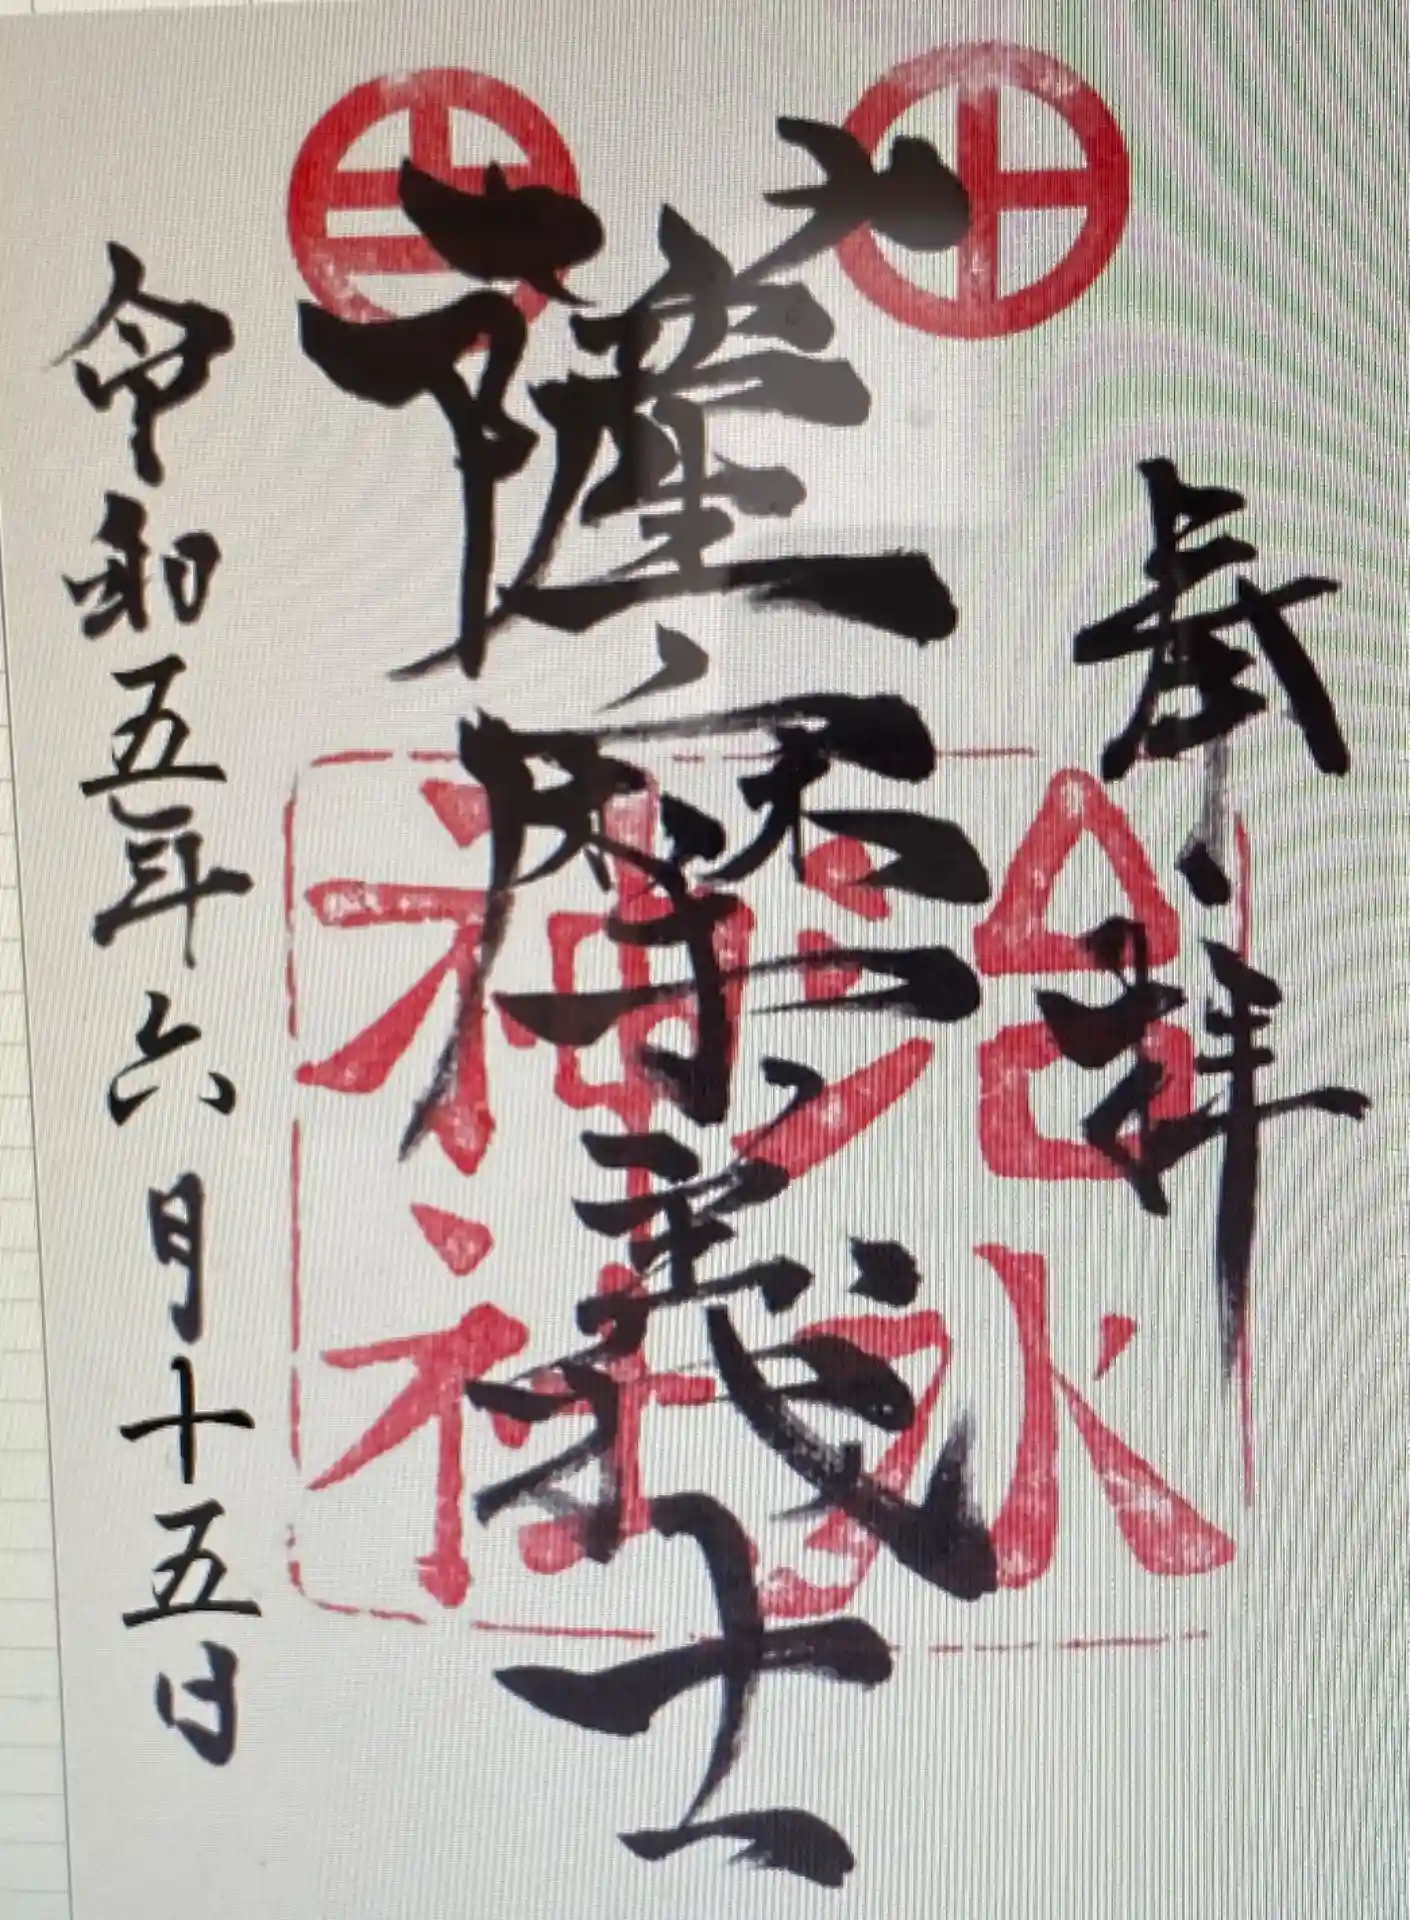 奉拝
薩摩義士
治水
神社
令和五年六月十五日